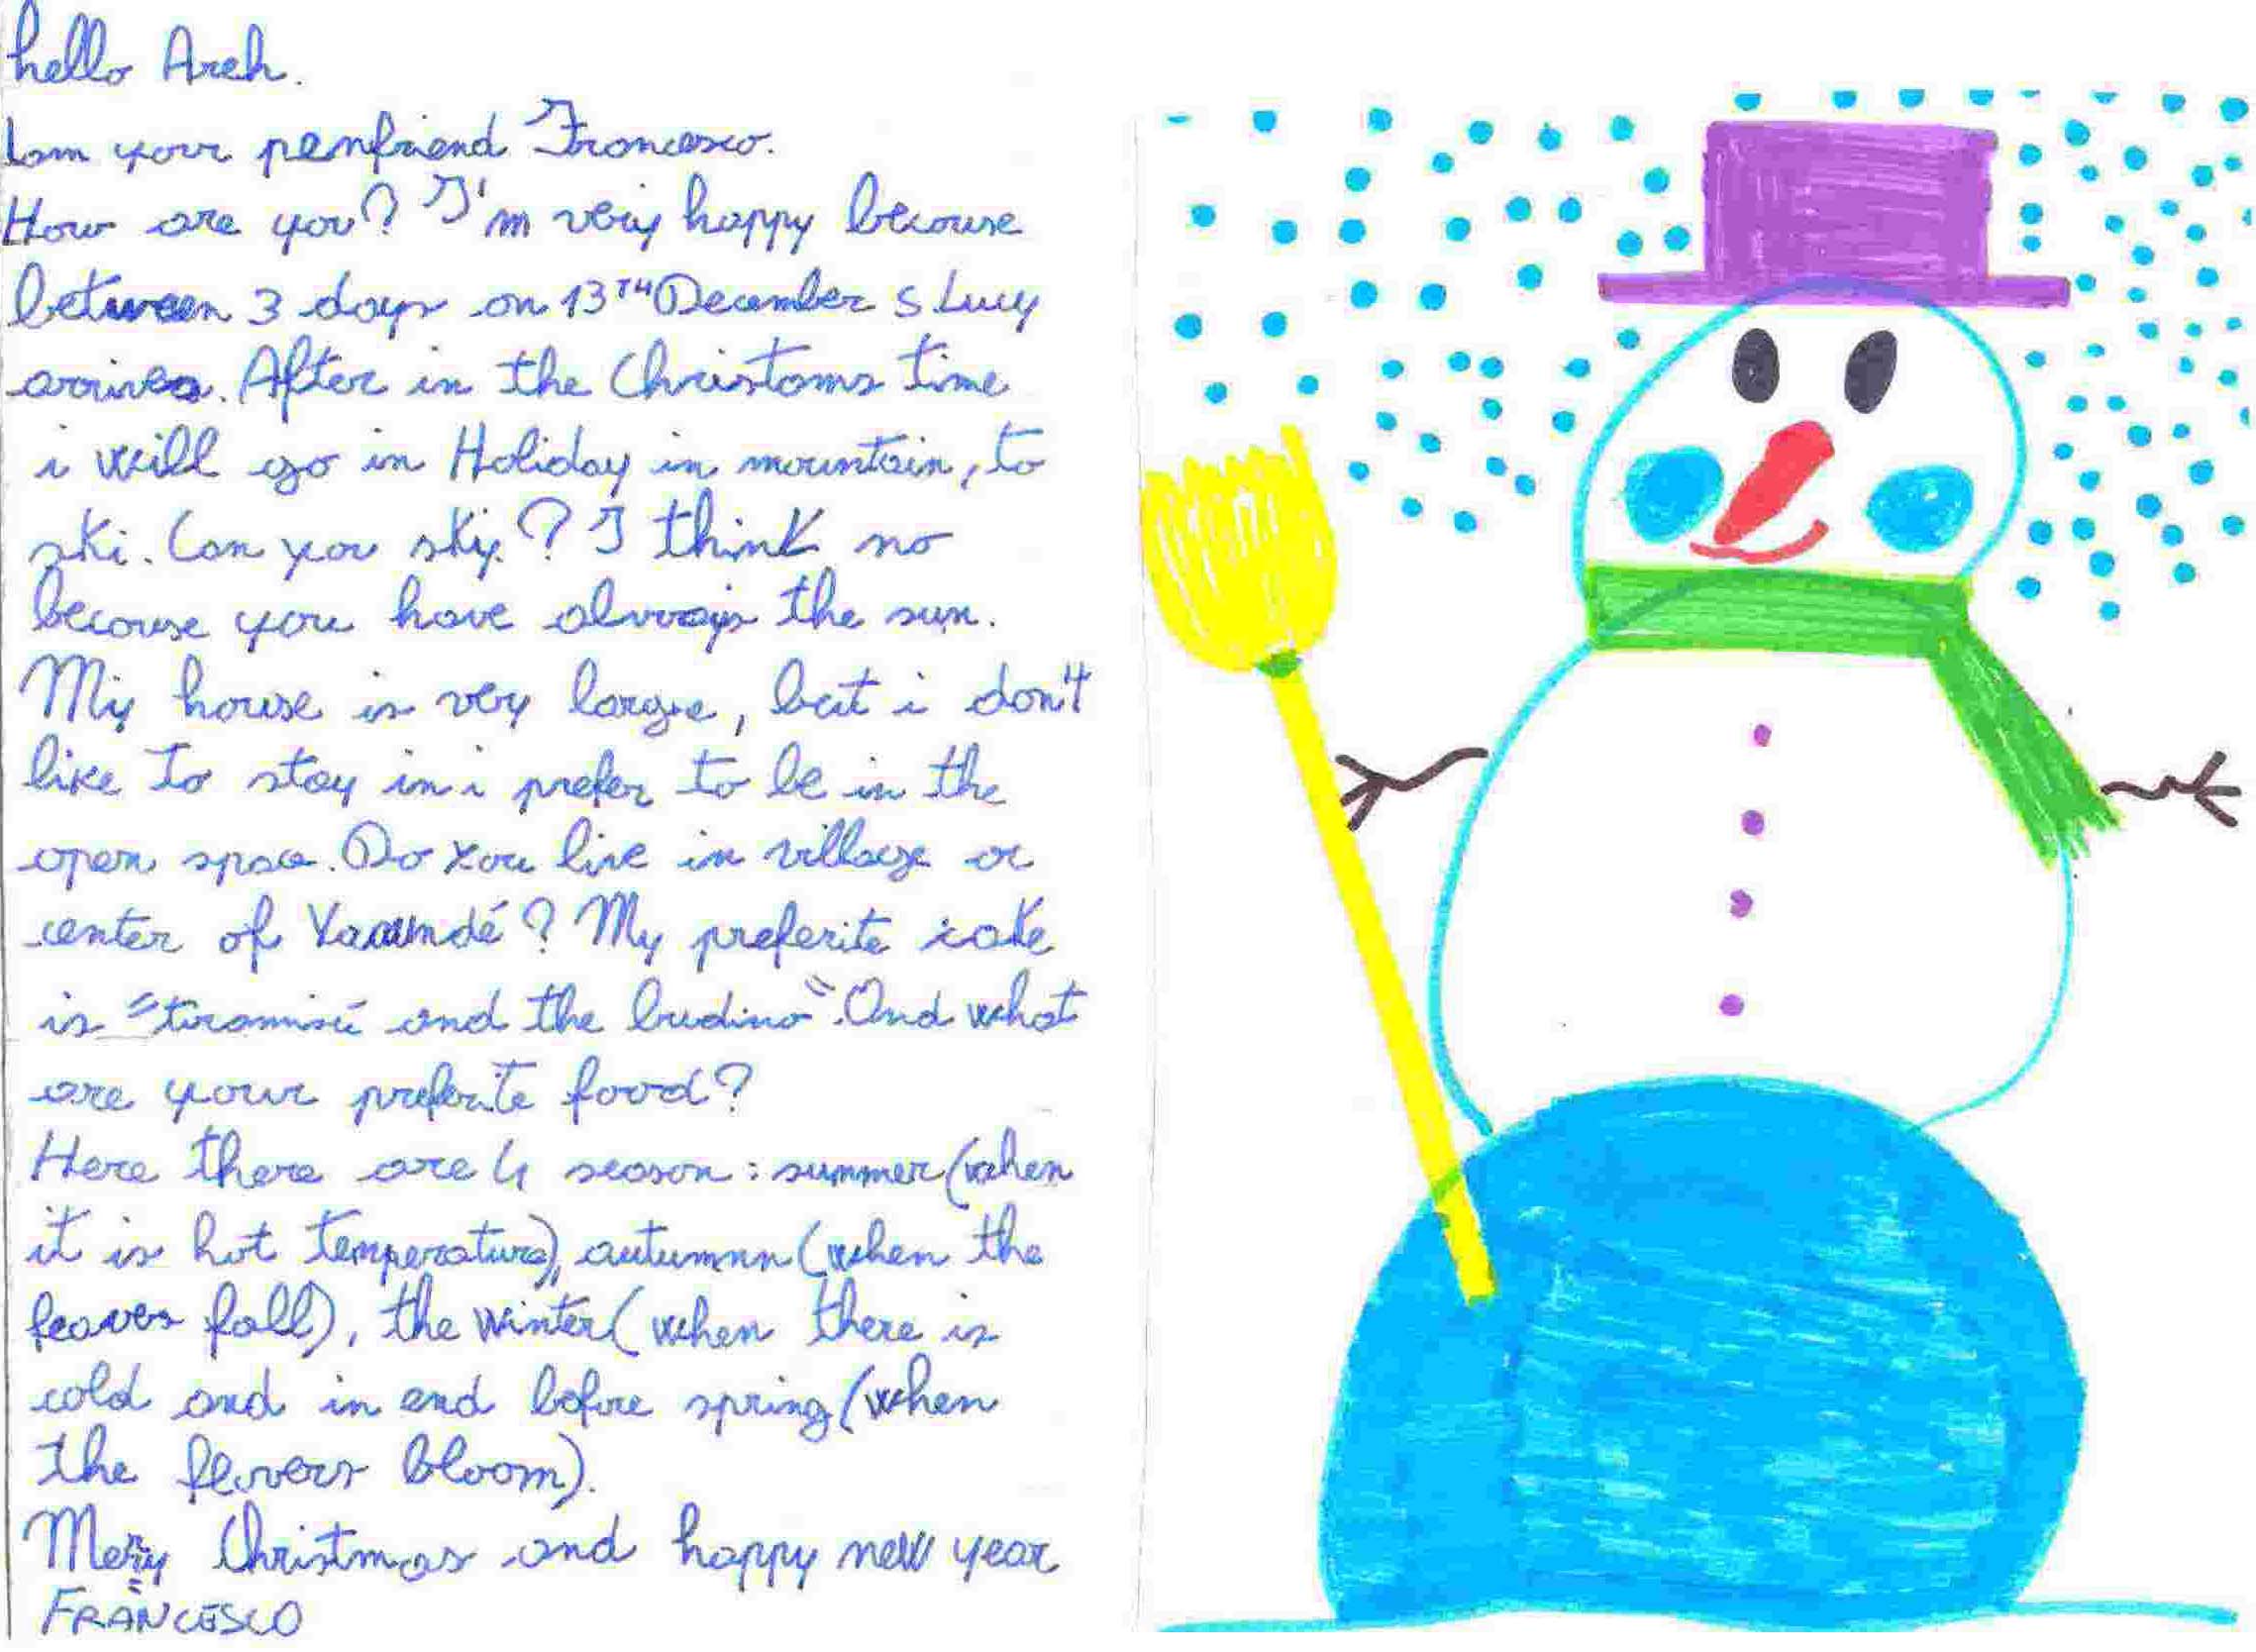 hello Areh.
I am your penfriend Francesco.
How are you? I'm very happy becouse
between 3 days on 13TH December S Lucy
arrives. After in the Christams time
i will go in Holiday in mountain, to
ski. Can you sky? I think no
becouse you have always the sun.
My house is very large, but i don't
like to stay in i prefer to be in the
open space. Do you live in village or
center of Yaoundé? My preferite cake
is "tiramisú and the budino". And what
are your preferite food?
Here there are 4 season: summer (when
it is hot temperature), autumnn (when the
leaves fall), the winter (when there is
cold and in end before spring (when
the flovers bloom).
Merry Christmas and happy new year
FRANCESCO